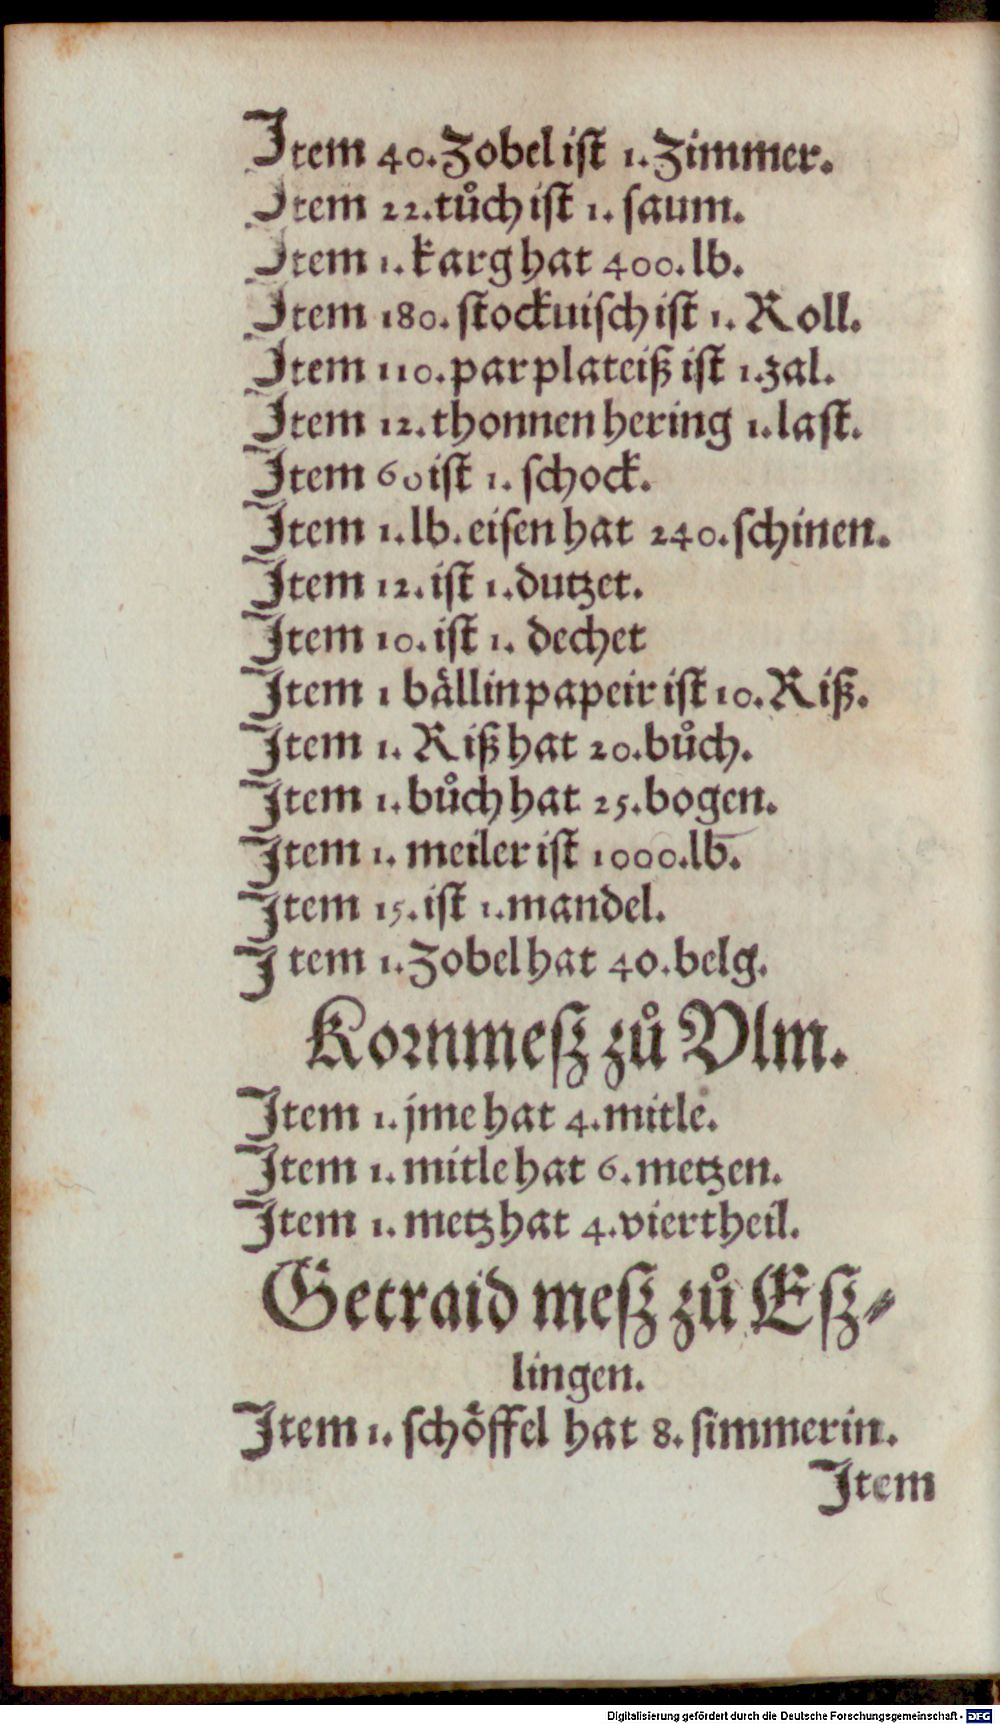 Item 40. Zobel ist 1. Zimmer.
Item 22. tůch ist 1. saum.
Item 1. karg hat 400. lb.
Item 180. stockuisch ist 1. Roll.
Item 110. par plateiß ist 1. zal.
Item 12. thonnen hering 1. last.
Item 60 ist 1. schock.
Item 1. lb. eisen hat 240. schinen.
Item 12. ist 1. dutzet.
Item 10. ist 1. dechet
Item 1 bällin papeir ist 10. Riß.
Item 1. Riß hat 20. bůch.
Item 1. bůch hat 25. bogen.
Item 1. meiler ist 1000. lb.
Item 15. ist 1. mandel.
Item 1. Zobel hat 40. belg.
Kornmeß zů Vlm.
Item 1. jme hat 4. mitle.
Item 1. mitle hat 6. metzen.
Item 1. metz hat 4. viertheil.
Getraid meß zů Eß-
lingen.
Item 1. schöffel hat 8. simmerin.
Item
Digitalisierung gefördert durch die Deutsche Forschungsgemeinschaft - DFG